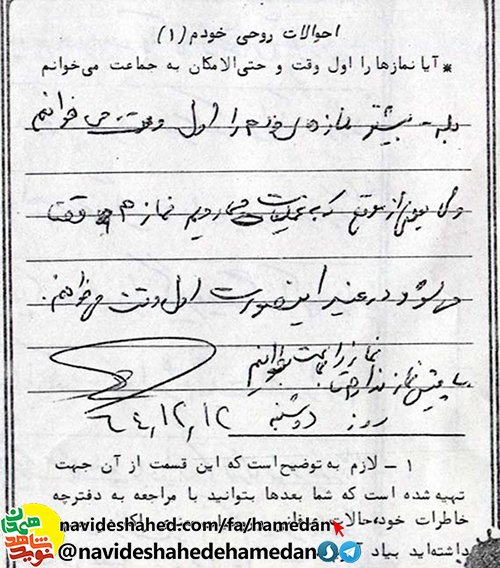 احوالات روحی خودم (۱)
* آیا نمازها را اول وقت و حتی‌الامکان به جماعت می‌خوانم
بله - بیشتر نمازهای خودم را اول وقت می خوانم
ولی بعضی از موقع که به عملیات میرویم نمازم وقت
می شود در غیر این صورت اول وقت میخوانم.
نماز را به جماعت بخوانم
روز دوشنبه ۶۴,۱۲,۱۲
۱ - لازم به توضیح است که این قسمت از آن جهت
تهیه شده است که شما بعدها بتوانید با مراجعه به دفترچه
خاطرات خود، حالات
navideshahed.com/fa/hamedan
داشته‌اید بیاد
@navideshahedehamedan
نوید شاهد
همدان